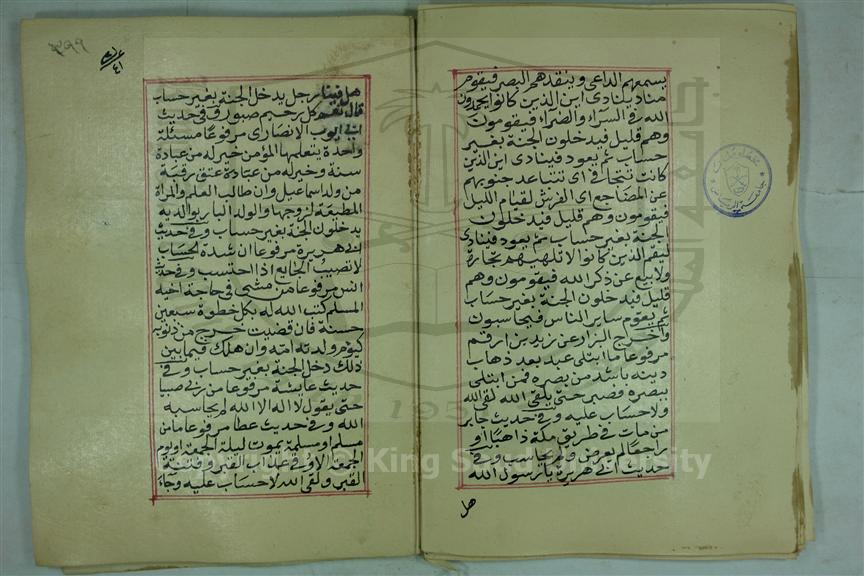 يسمعهم الداعى وينقدهم البصر فيقوم
مناد ينادى اين الذين كانوا يحمدون
الله فى السراء والضراء فيقومون
وهم قليل فيدخلون الجنة بغير
حساب ثم يعود فينادى اين الذين
كانت تتجافى اى تتباعد جنوبهم
عن المضاجع اى الفرش لقيام الليل
فيقومون وهم قليل فيدخلون
الجنة بغير حساب ثم يعود فينادى
ليقم الذين كانوا لا تلهيهم تجارة
ولا بيع عن ذكر الله فيقومون وهم
قليل فيدخلون الجنة بغير حساب
ثم يقوم ساير الناس فيحاسبون
واخرج البزار عن زيد بن ارقم
مرفوعا ما ابتلى عبد بعد ذهاب
دينه باشد من بصره فمن ابتلى
ببصره فصبر حتى يلقى الله لقى الله
ولا حساب عليه وفى حديث جابر
من مات فى طريق مكة ذاهبا او
راجعا لم يعرض ولم يحاسب وفى
حديث ابى هريرة يا رسول الله
هل
هل فينا رجل يدخل الجنة بغير حساب
قال نعم كل رحيم صبور وفى حديث
ابى ايوب الانصارى مرفوعا مسئلة
واحدة يتعلمها المؤمن خير له من عبادة
سنة وخير له من عتق رقبة
من ولد اسماعيل وان طالب العلم والمراة
المطيعة لزوجها والولد البار بوالديه
يدخلون الجنة بغير حساب وفى حديث
ابى هريرة مرفوعا ان شدة الحساب
لا تصيب الجايع اذا احتسب وفى حديث
انس مرفوعا من مشى فى حاجة اخيه
المسلم كتب الله له بكل خطوة سبعين
حسنة فان قضيت خرج من ذنوبه
كيوم ولدته امه وان هلك فيما بين
ذلك دخل الجنة بغير حساب وفى
حديث عايشة مرفوعا من ربى صبيا
حتى يقول لا اله الا الله لم يحاسبه
الله وفى حديث عطا مرفوعا ما من
مسلم او مسلمة يموت ليلة الجمعة او يوم
الجمعة الا وقى عذاب القبر وفتنة
القبر ولقى الله لا حساب عليه وجاء
Copyright © King Saud University